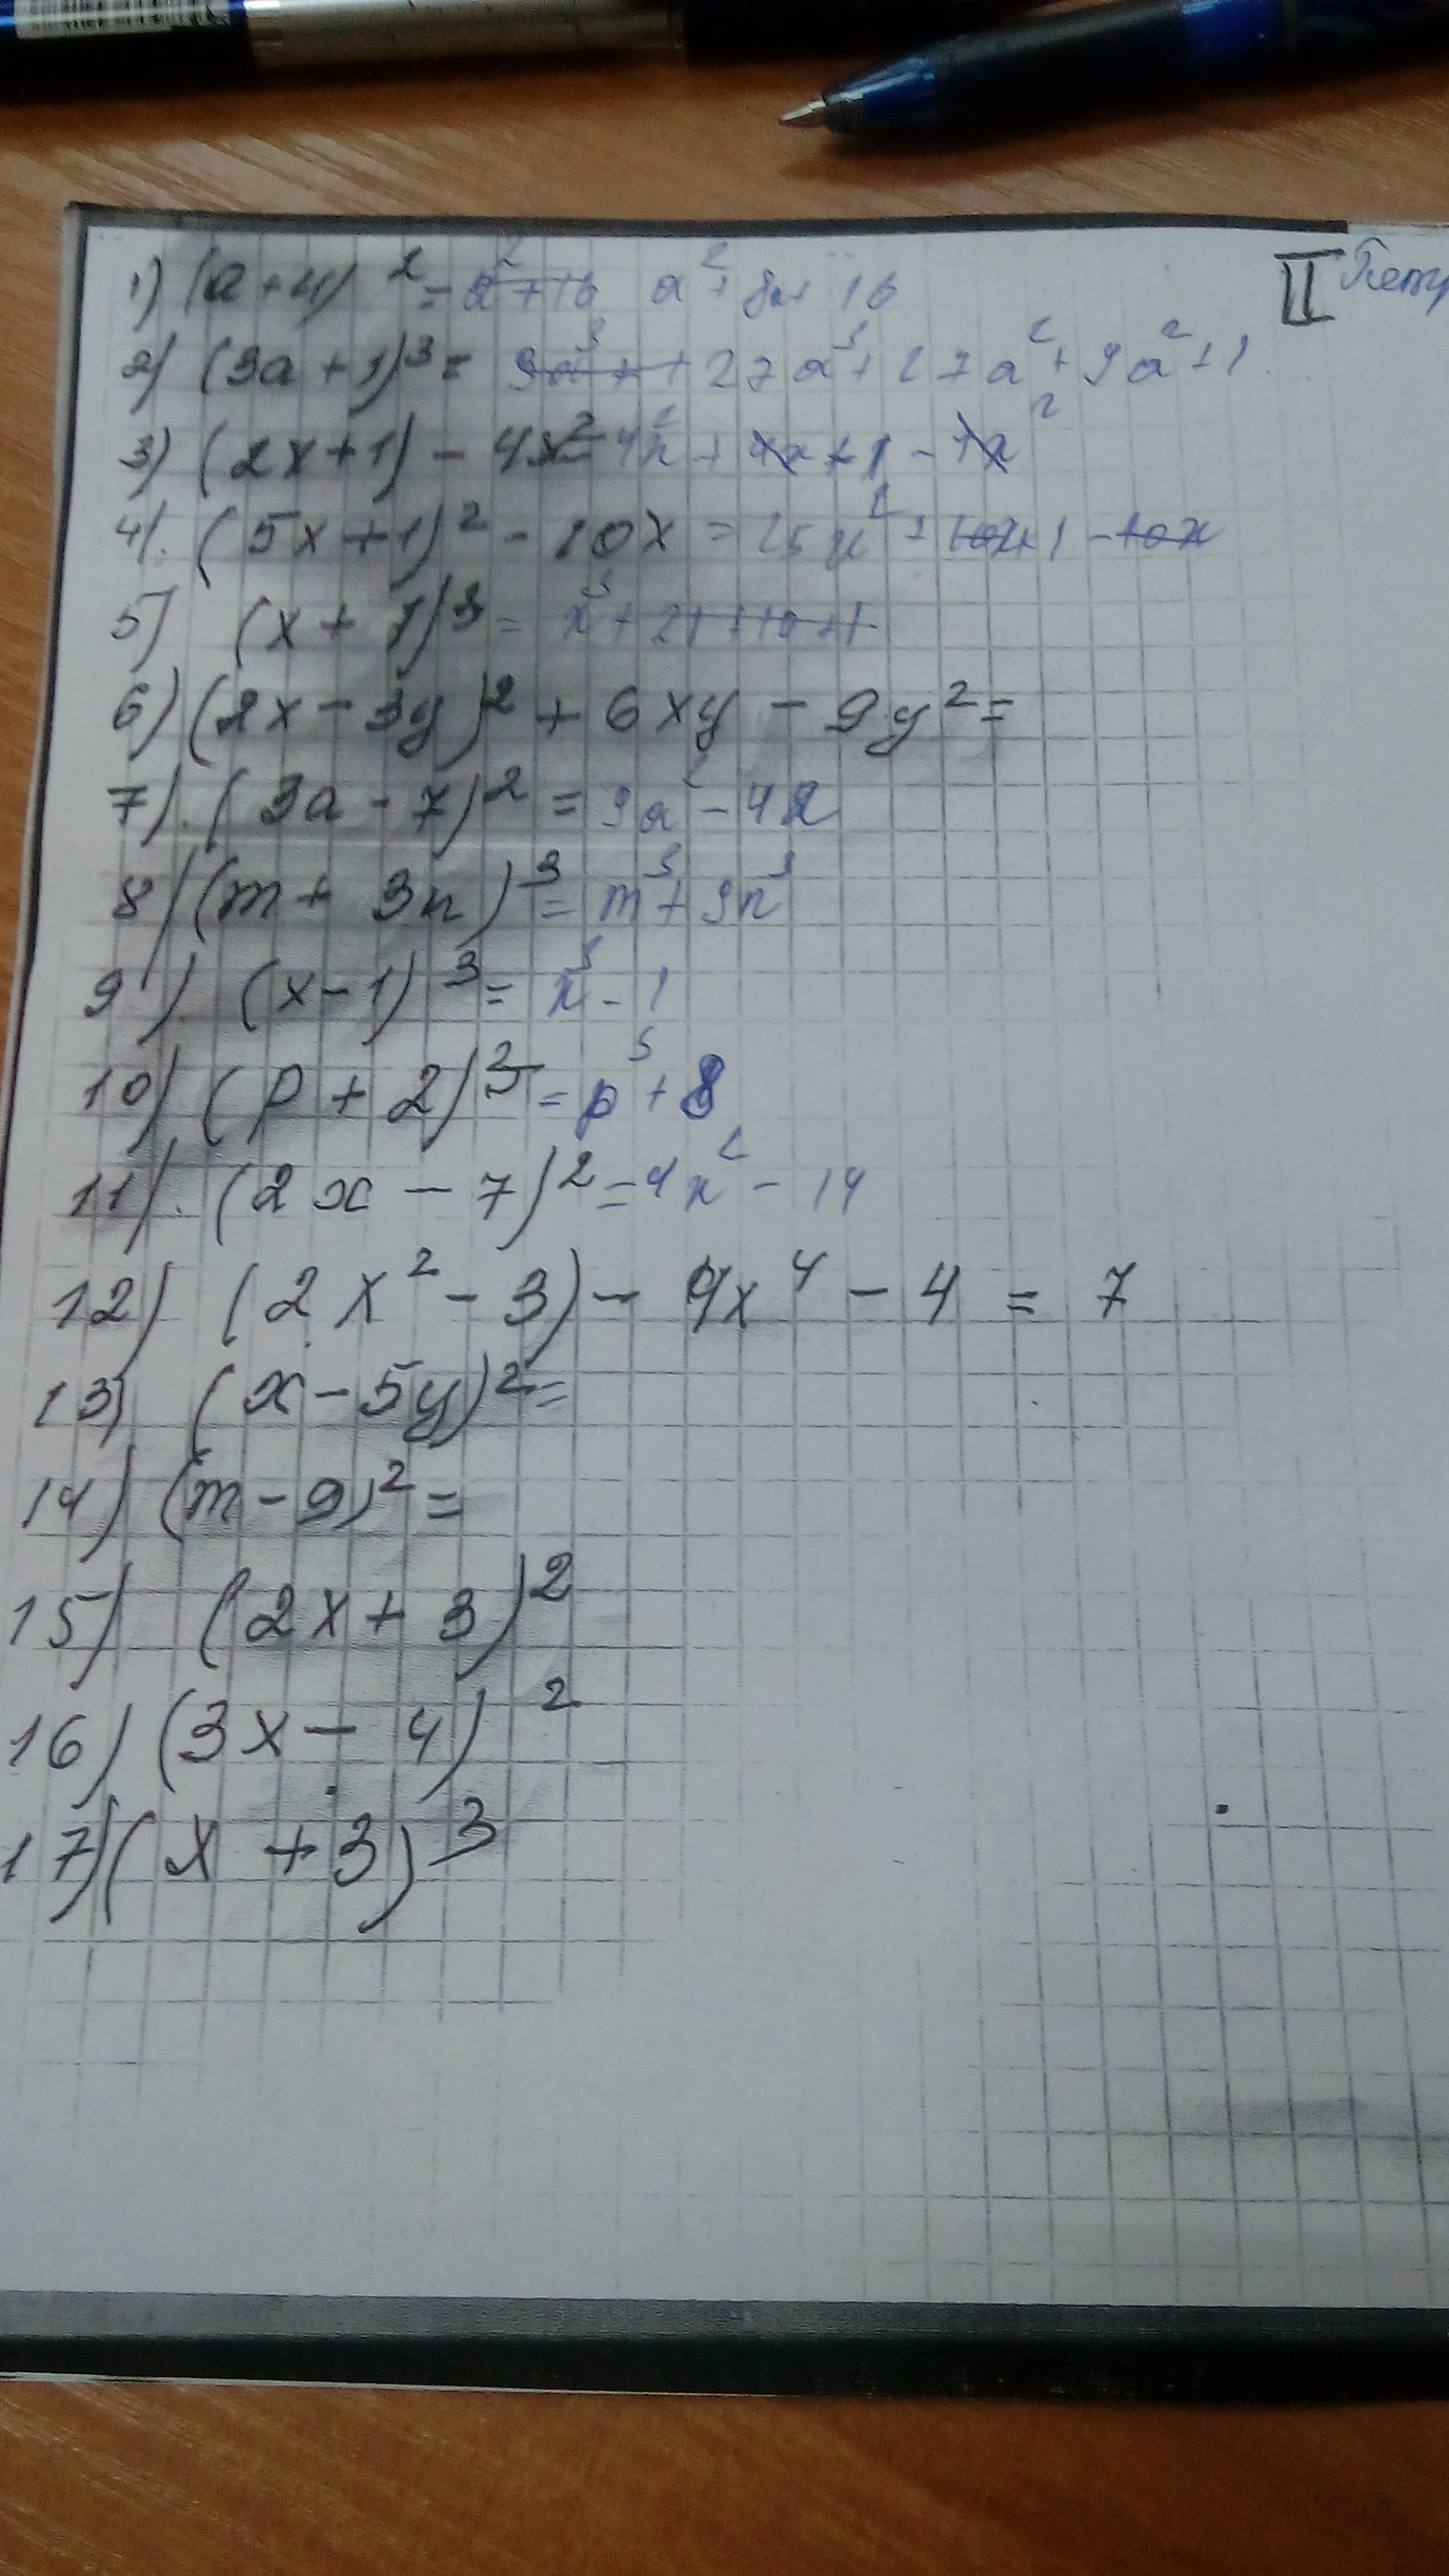 1) (a+4)² = a²+16 a²+8a+16
II
2) (3a+1)³ = 27a³+27a²+9a²+1
3) (2x+1) - 4x² = 4x²+4x+1-4x²
4). (5x+1)² - 10x = 25x²+10x+1-10x
5) (x+7)³ = x³+21
6) (2x-3y)² + 6xy - 9y² =
7). (3a-7)² = 9a²-42
8) (m+3n)³ = m³+9n³
9). (x-1)³ = x³-1
10) (p+2)³ = p³+8
11). (2x-7)² = 4x²-14
12) (2x²-3) - 4x⁴ - 4 = 7
13) (x-5y)² =
14) (m-9)² =
15) (2x+3)²
16) (3x-4)²
17) (x+3)³